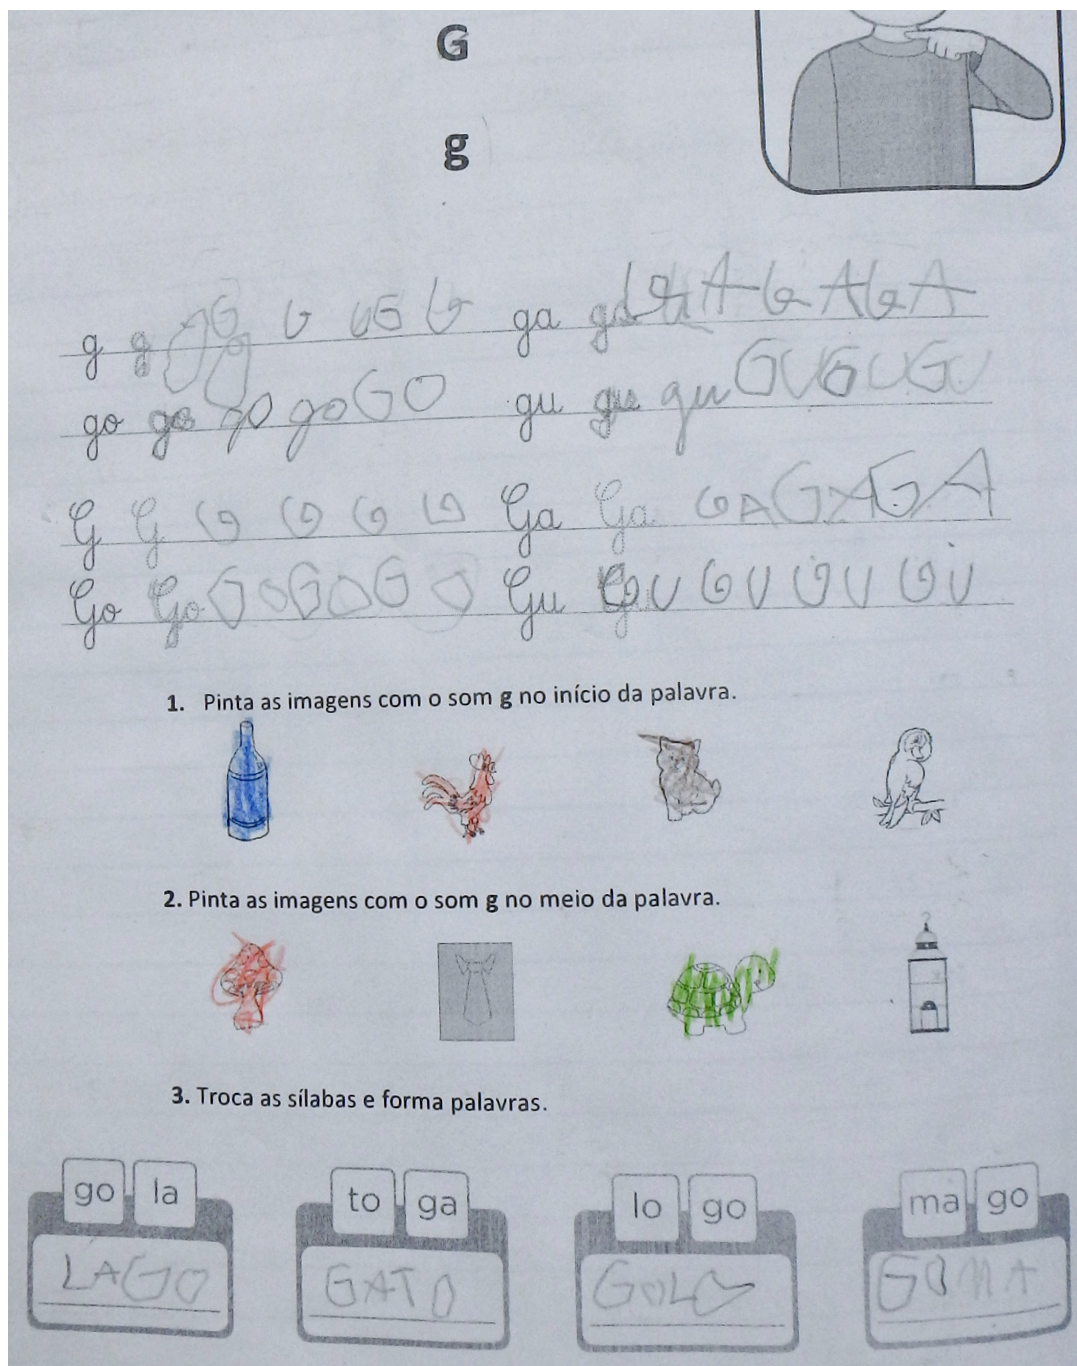 G
g
g g G G G G G ga ga GA GAGA
go go go go GO gu gu gu GUGUGU
G G G G G G Ga Ga GAGAGA
Go Go GOGOGO Gu GU GU GU GU
1. Pinta as imagens com o som g no início da palavra.
2. Pinta as imagens com o som g no meio da palavra.
3. Troca as sílabas e forma palavras.
go la to ga lo go ma go
LAGO GATO GOLO GOMA